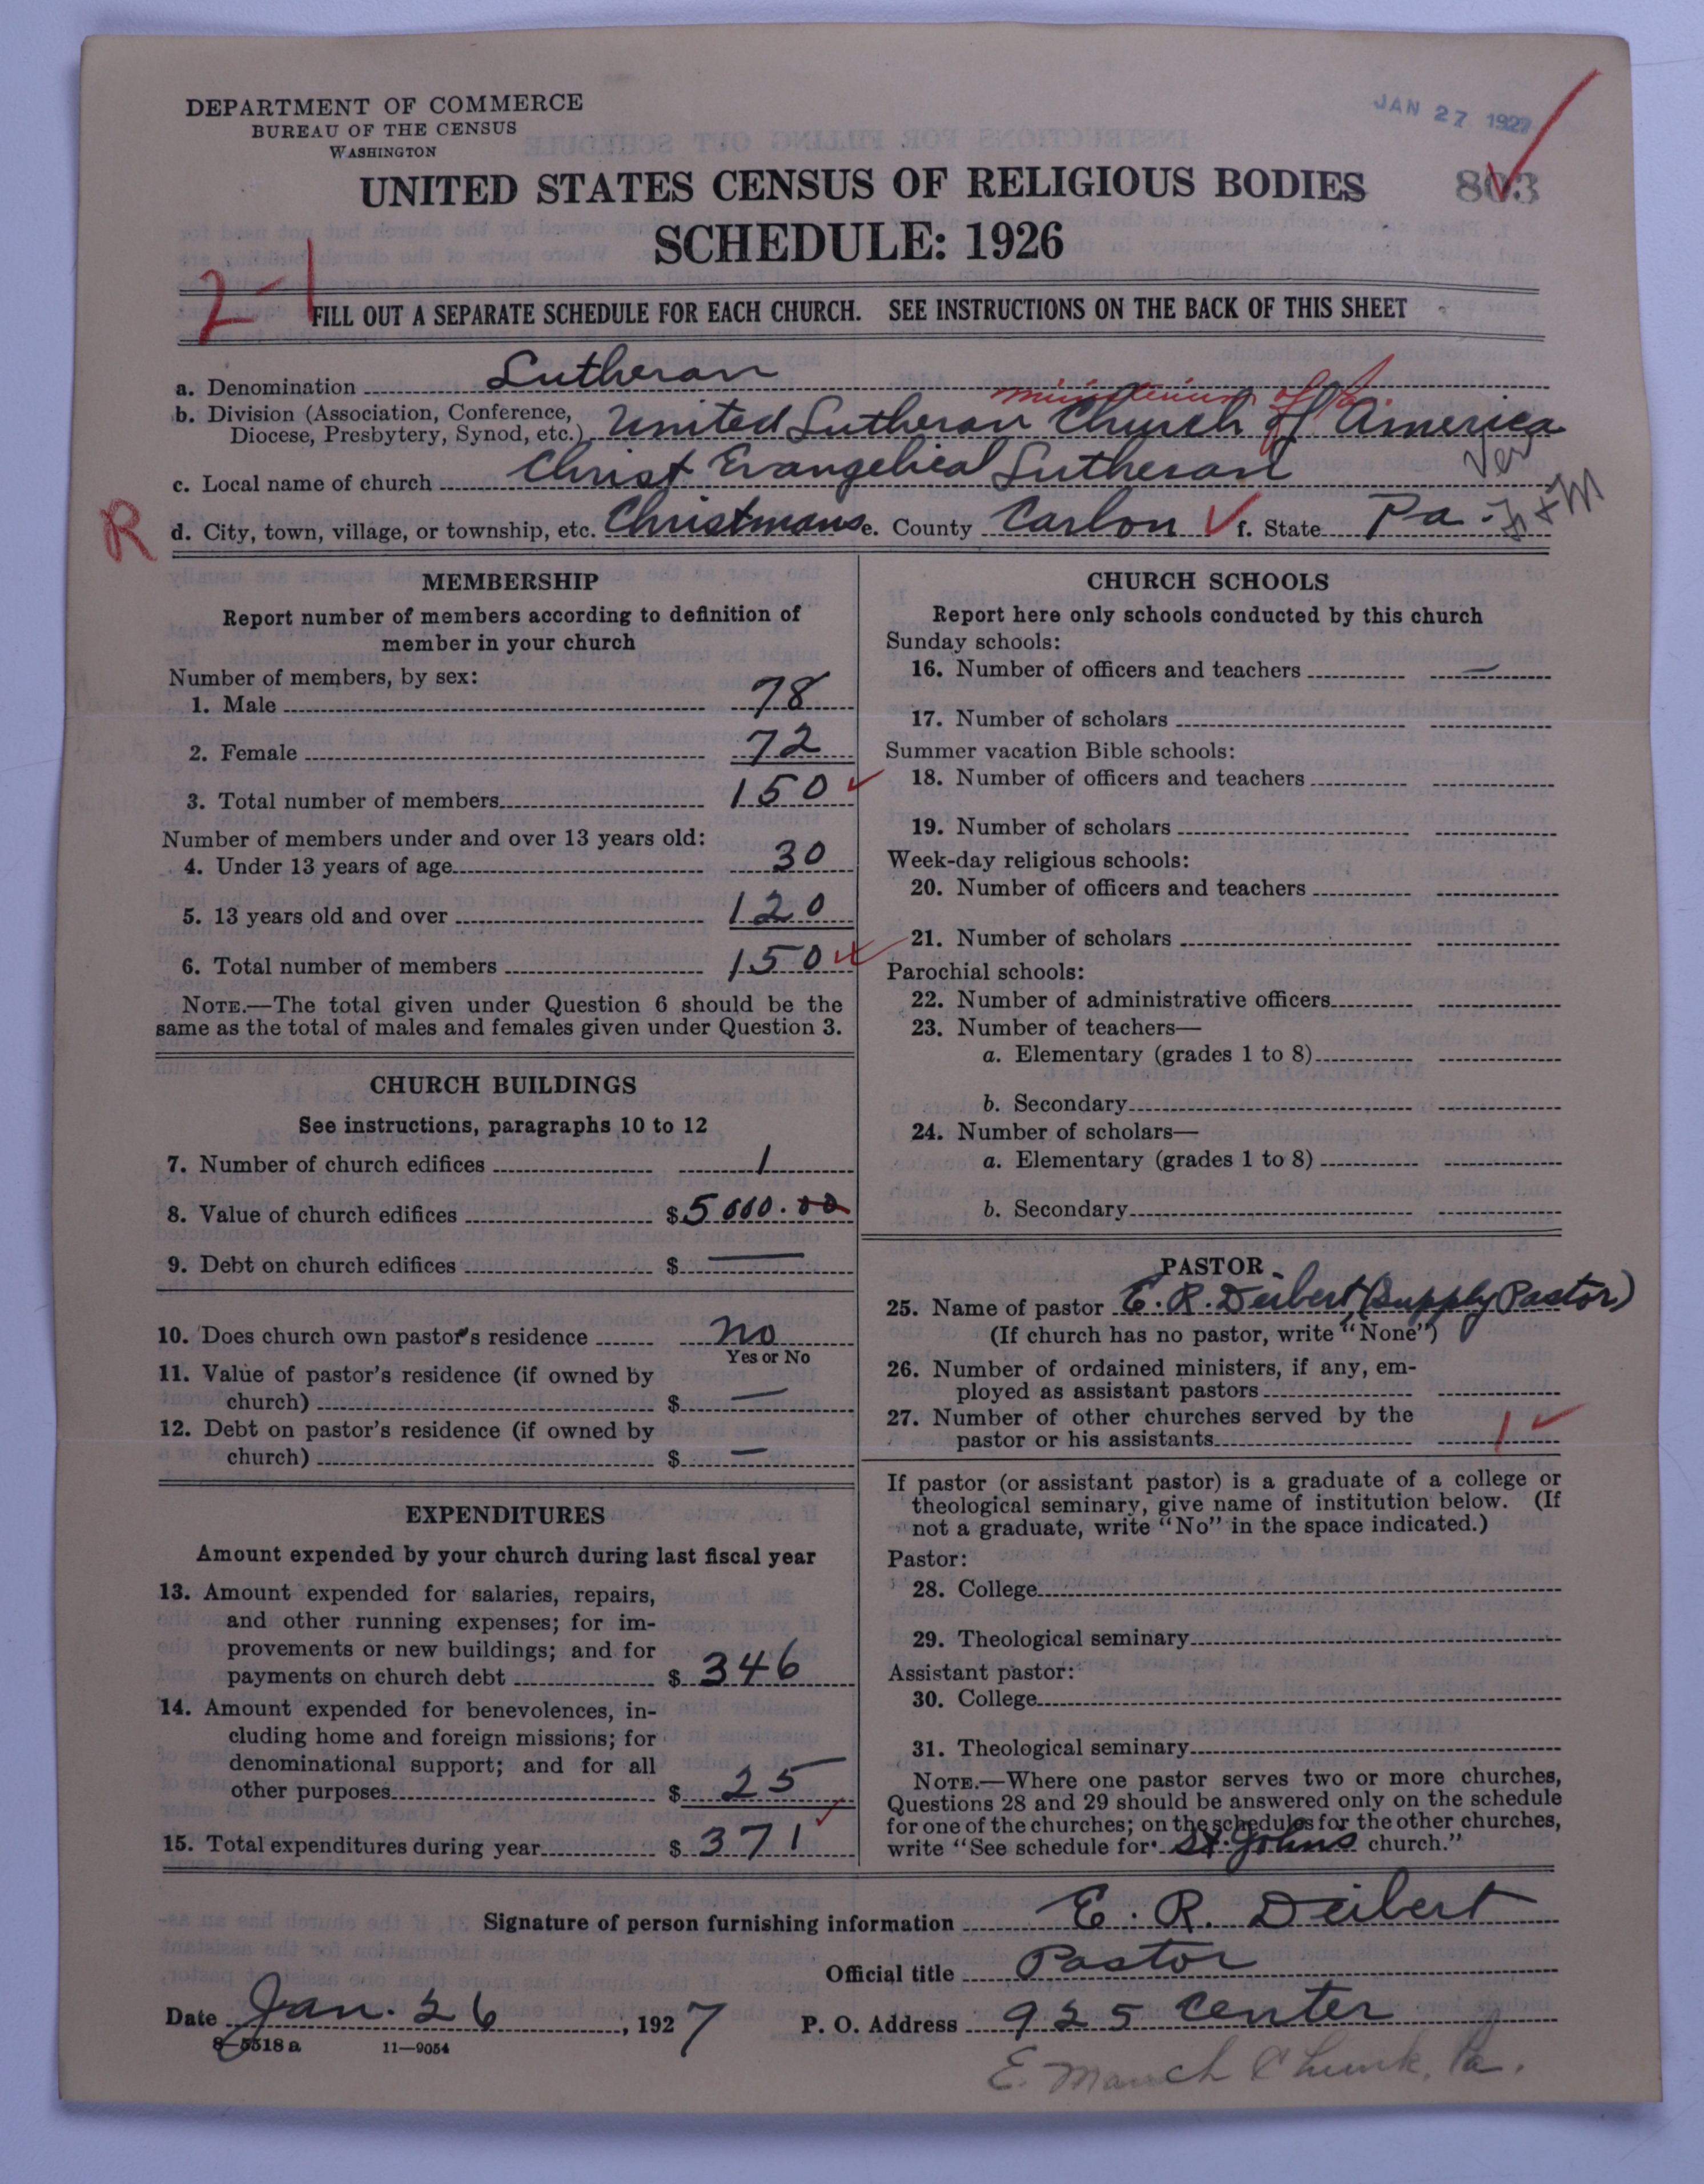 DEPARTMENT OF COMMERCE
BUREAU OF THE CENSUS
WASHINGTON
JAN 27 1927
UNITED STATES CENSUS OF RELIGIOUS BODIES
803
SCHEDULE: 1926
2-1
FILL OUT A SEPARATE SCHEDULE FOR EACH CHURCH. SEE INSTRUCTIONS ON THE BACK OF THIS SHEET
a. Denomination Lutheran
ministerium of Pa.
b. Division (Association, Conference, Diocese, Presbytery, Synod, etc.) United Lutheran Church of America
c. Local name of church Christ Evangelical Lutheran
Ver
R
d. City, town, village, or township, etc. Christmans e. County Carbon f. State Pa.
MEMBERSHIP
Report number of members according to definition of
member in your church
Number of members, by sex:
1. Male 78
2. Female 72
3. Total number of members 150
Number of members under and over 13 years old:
4. Under 13 years of age 30
5. 13 years old and over 120
6. Total number of members 150
NOTE.—The total given under Question 6 should be the
same as the total of males and females given under Question 3.
CHURCH BUILDINGS
See instructions, paragraphs 10 to 12
7. Number of church edifices 1
8. Value of church edifices $ 5000.00
9. Debt on church edifices $ —
10. Does church own pastor's residence no
Yes or No
11. Value of pastor's residence (if owned by
church) $ —
12. Debt on pastor's residence (if owned by
church) $ —
EXPENDITURES
Amount expended by your church during last fiscal year
13. Amount expended for salaries, repairs,
and other running expenses; for im-
provements or new buildings; and for
payments on church debt $ 346
14. Amount expended for benevolences, in-
cluding home and foreign missions; for
denominational support; and for all
other purposes $ 25
15. Total expenditures during year $ 371
CHURCH SCHOOLS
Report here only schools conducted by this church
Sunday schools:
16. Number of officers and teachers —
17. Number of scholars
Summer vacation Bible schools:
18. Number of officers and teachers
19. Number of scholars
Week-day religious schools:
20. Number of officers and teachers
21. Number of scholars
Parochial schools:
22. Number of administrative officers
23. Number of teachers—
a. Elementary (grades 1 to 8)
b. Secondary
24. Number of scholars—
a. Elementary (grades 1 to 8)
b. Secondary
PASTOR
25. Name of pastor E. R. Deibert (Supply Pastor)
(If church has no pastor, write "None")
26. Number of ordained ministers, if any, em-
ployed as assistant pastors
27. Number of other churches served by the
pastor or his assistants 1
If pastor (or assistant pastor) is a graduate of a college or
theological seminary, give name of institution below. (If
not a graduate, write "No" in the space indicated.)
Pastor:
28. College
29. Theological seminary
Assistant pastor:
30. College
31. Theological seminary
NOTE.—Where one pastor serves two or more churches,
Questions 28 and 29 should be answered only on the schedule
for one of the churches; on the schedules for the other churches,
write "See schedule for St. Johns church."
Signature of person furnishing information E. R. Deibert
Official title Pastor
Date Jan. 26, 1927 P. O. Address 925 Center
8—5518 a 11—9054
E. Mauch Chunk, Pa.